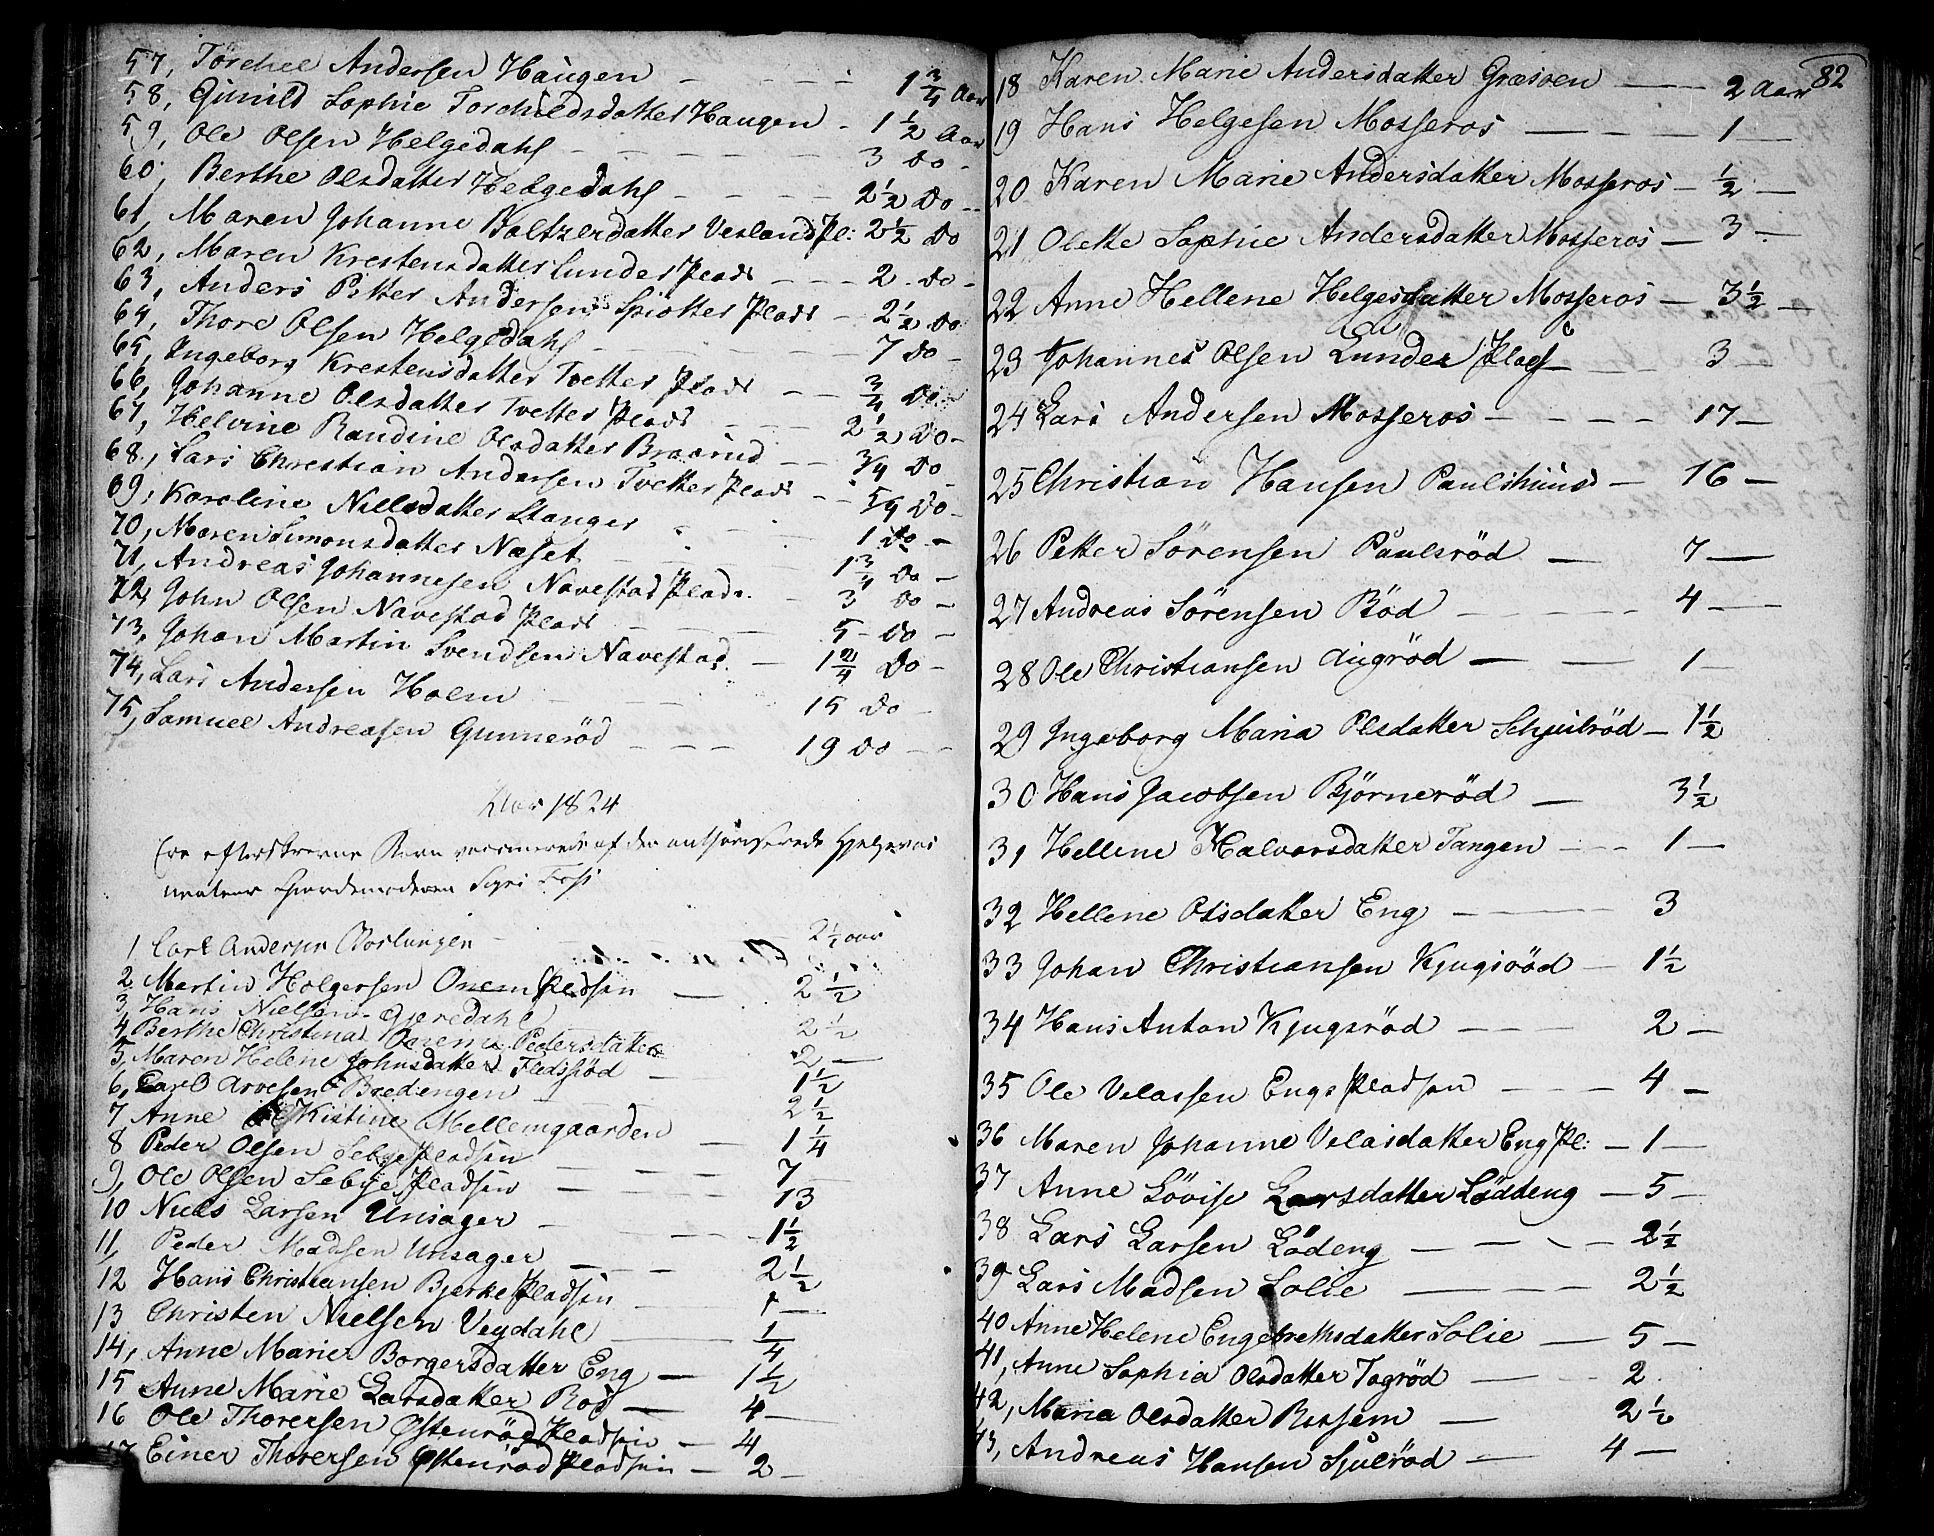 57, Torchel Andersen Haugen - - - - 1 3/4 Aar
58, Gunild Sophie Torchildsdatter Haugen - 1 1/2 Aar
59, Ole Olsen Helgedahl - - - - 3 Do -
60, Berthe Olsdatter Helgedahl - - - - 2 1/2 Do -
61, Maren Johanne Baltzerdatter Veslandpl: 2 1/2 Do
62, Maren Krestensdatter Lunder Plads - - - 2 Do -
63, Anders Petter Andersen Spiotter Plads - 2 1/2 Do
64, Thore Olsen Helgedahl - - - 7 Do -
65, Ingeborg Krestensdatter Tvetter Plads - - 3/4 Do
66, Johanne Olsdatter Tvetter Plads - - - 2 1/2 Do -
67, Helvine Randine Olsdatter Braarud - - 3/4 Do
68, Lars Chrestian Andersen Tvetter Plads - - 5/4 Do -
69, Karoline Nielsdatter Stanger - - - 1 Do -
70, Maren Simonsdatter Næset - - - 1 3/4 Do -
71, Andreas Johannesen Navestad Plads - 3 Do -
72, John Olsen Navestad Plads - - - 5 - Do -
73, Johan Martin Svendsen Navestad - 1 2/4 Do -
74, Lars Andersen Holm - - - 15 Do -
75, Samuel Andreasen Gunnerød - - - 19 Do - -
Aar 1824
Ere efterskrevne Børn vaccinerede af den authoriserede Hjelpevac
cinateur Gjordemoderen Siri
1 Carl Andersen - - 2 1/2 aar
2 Martin Holgersen Onem Pladsen - 2 1/2
3, Hans Nielsen Gjeredahl
4 Berthe Christina Onem Pedersdatter 2 1/2
5 Maren Helene Johnsdatter - 2 -
6, Carl Arvesen Bredengen - 1 1/2
7 Anne Kistine Mellemgaarden - 2 1/2
8 Peder Olsen Sebye Pladsen - 1 1/4
9, Ole Olsen Sebye Pladsen - - - 7
10 Niels Larsen Unsager - 13
11, Peder Madsen Unsager - - - 1 1/2
12 Hans Christiansen Bjerke Pladsen - 2 1/2
13 Christen Nielsen Veydahl - 1 -
14, Anne Marie Borgersdatter Eng - 1/4
15 Anne Marie Larsdatter Rød - 1 1/2
16 Ole Thorersen Østenrød Pladsen - 4 -
17 Einer Thorersen Østenrød Pladsen - 4
2 -
82
18 Karen Marie Andersdatter Græsoen - - 2 Aar
19 Hans Helgesen Mosseros - - - 1 -
20 Karen Marie Andersdatter Mosseros - 1/2 -
21 Olette Sophie Andersdatter Mosseros - 3 -
22 Anne Hellene Helgesdatter Mosseros - 3 1/2 -
23 Johannes Olsen Lunder Plads - - - 3 -
24 Lars Andersen Mosseros - - - - 17 -
25 Christian Hansen Paulshuus - 16 -
26 Petter Sörensen Paulsröd - 7 -
27 Andreas Sörensen Röd - - - 4 -
28 Ole Christiansen Augröd - - 1 -
29 Ingeborg Maria Olsdatter Schjulröd - 1 1/2
30 Hans Jacobsen Björneröd - 3 1/2
31 Hellene Halvorsdatter Tangen - - - 1 -
32 Hellene Olsdatter Eng - - - 3
33 Johan Christiansen Kjugsröd - 1 1/2
34 Hans Anton Kjugsröd - - - 2 -
35 Ole Velassen Engs Pladsen - - - 4 -
36 Maren Johanne Velasdatter Eng Pl: - 1 -
37 Anne Lövise Larsdatter Löddeng - 5 -
38 Lars Larsen Lödeng - - - - 2 1/2
39 Lars Madsen Solie - - - 2 1/2
40 Anne Helene Engebrethsdatter Solie - 5 -
41, Anne Sophia Olsdatter Togröd - - 2
42, Maria Olsdatter Bessem - 2 1/2
43, Andreas Hansen Sjulröd - - 4 -